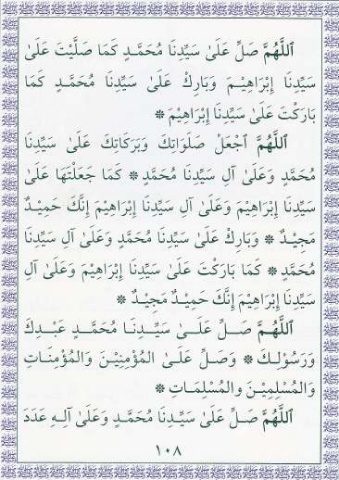 ٱللَّهُمَّ صَلِّ عَلَىٰ سَيِّدِنَا مُحَمَّدٍ كَمَا صَلَّيْتَ عَلَىٰ
سَيِّدِنَا إِبْرَاهِيْمَ وَبَارِكْ عَلَىٰ سَيِّدِنَا مُحَمَّدٍ كَمَا
بَارَكْتَ عَلَىٰ سَيِّدِنَا إِبْرَاهِيْمَ *
ٱللَّهُمَّ ٱجْعَلْ صَلَوَاتِكَ وَبَرَكَاتِكَ عَلَىٰ سَيِّدِنَا
مُحَمَّدٍ وَعَلَىٰ آلِ سَيِّدِنَا مُحَمَّدٍ * كَمَا جَعَلْتَهَا عَلَىٰ
سَيِّدِنَا إِبْرَاهِيْمَ وَعَلَىٰ آلِ سَيِّدِنَا إِبْرَاهِيْمَ إِنَّكَ حَمِيْدٌ
مَجِيْدٌ * وَبَارِكْ عَلَىٰ سَيِّدِنَا مُحَمَّدٍ وَعَلَىٰ آلِ سَيِّدِنَا
مُحَمَّدٍ * كَمَا بَارَكْتَ عَلَىٰ سَيِّدِنَا إِبْرَاهِيْمَ وَعَلَىٰ آلِ
سَيِّدِنَا إِبْرَاهِيْمَ إِنَّكَ حَمِيْدٌ مَجِيْدٌ *
ٱللَّهُمَّ صَلِّ عَلَىٰ سَيِّدِنَا مُحَمَّدٍ عَبْدِكَ
وَرَسُوْلِكَ * وَصَلِّ عَلَىٰ المُؤْمِنِيْنَ وَالمُؤْمِنَاتِ
وَالمُسْلِمِيْنَ وَالمُسْلِمَاتِ *
ٱللَّهُمَّ صَلِّ عَلَىٰ سَيِّدِنَا مُحَمَّدٍ وَعَلَىٰ آلِهِ عَدَدَ
١٠٨